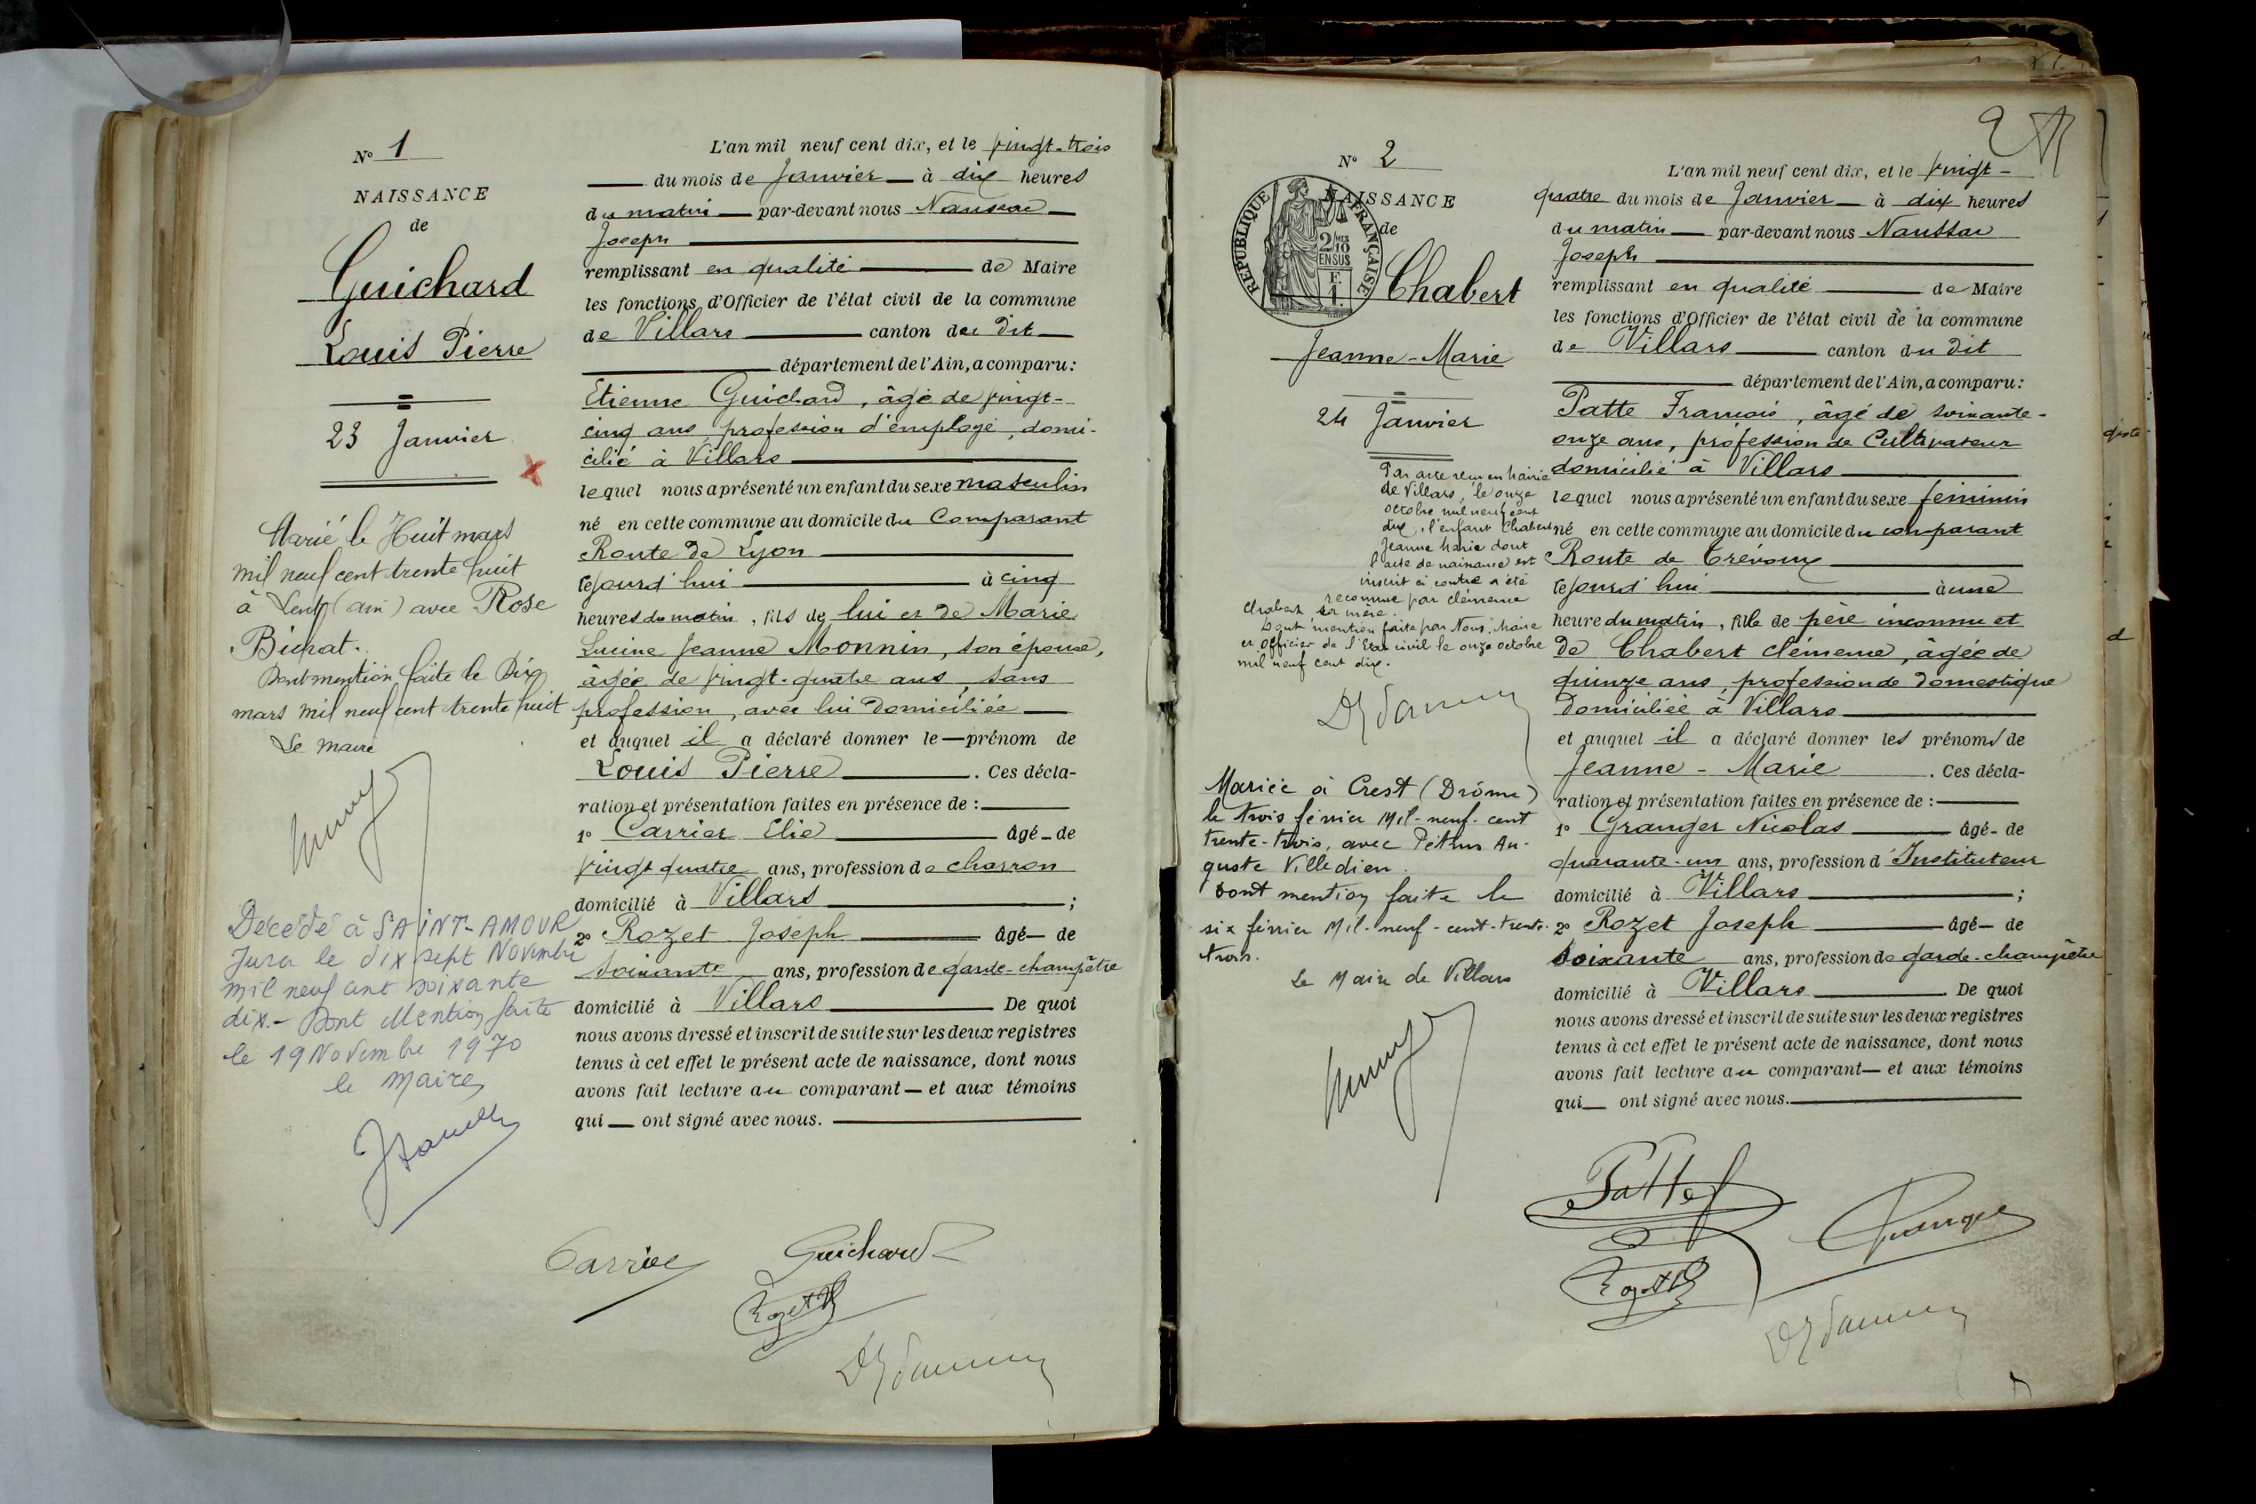 N° 1
NAISSANCE
de
Guichard
Louis Pierre
23 Janvier
Marié le Huit mars
mil neuf cent trente huit
à (ain) avec Rose
Bichat.
Dont mention faite le Dix
mars mil neuf cent trente huit
Le maire
Décédé à SAINT-AMOUR
Jura le dix sept Novembre
mil neuf cent soixante
dix.- Dont Mention faite
le 19 Novembre 1970
le Maire
L'an mil neuf cent dix, et le vingt-trois
du mois de Janvier à dix heures
du matin par-devant nous Naussac
Joseph
remplissant en qualité de Maire
les fonctions d'Officier de l'état civil de la commune
de Villars canton du dit
département de l'Ain, a comparu :
Etienne Guichard, âgé de vingt-
cinq ans profession d'employé, domi-
cilié à Villars
lequel nous a présenté un enfant du sexe masculin
né en cette commune au domicile du Comparant
Route de Lyon
cejourd'hui à cinq
heures du matin, fils de lui et de Marie
Lucine Jeanne Monnin, son épouse,
âgée de vingt-quatre ans, sans
profession, avec lui domiciliée
et auquel il a déclaré donner le prénom de
Louis Pierre. Ces décla-
ration et présentation faites en présence de :
1° Carrier Elie âgé de
vingt quatre ans, profession de charron
domicilié à Villars ;
2° Rozet Joseph âgé de
soixante ans, profession de garde-champêtre
domicilié à Villars De quoi
nous avons dressé et inscrit de suite sur les deux registres
tenus à cet effet le présent acte de naissance, dont nous
avons fait lecture au comparant et aux témoins
qui ont signé avec nous.
Carrier
Guichard
Rozet
N° 2
NAISSANCE
de
RÉPUBLIQUE FRANÇAISE
2/10
EN SUS
Chabert
Jeanne-Marie
24 Janvier
Par acte reçu en mairie
de Villars, le onze
octobre mil neuf cent
dix, l'enfant Chabert
Jeanne Marie dont
l'acte de naissance est
inscrit ci contre a été
reconnue par clémence
Chabert sa mère.
Dont mention faite par Nous, Maire
et Officier de l'Etat civil le onze octobre
mil neuf cent dix.
Mariée à Crest (Drôme)
le trois février Mil-neuf-cent
trente-trois, avec Pétrus Au-
guste Villedieu.
Dont mention faite le
six février Mil-neuf-cent-trente-
trois.
Le Maire de Villars
2
L'an mil neuf cent dix, et le vingt-
quatre du mois de Janvier à dix heures
du matin par-devant nous Naussac
Joseph
remplissant en qualité de Maire
les fonctions d'Officier de l'état civil de la commune
de Villars canton du dit
département de l'Ain, a comparu :
Patte François, âgé de soixante-
onze ans, profession de Cultivateur
domicilié à Villars
lequel nous a présenté un enfant du sexe féminin
né en cette commune au domicile du comparant
Route de Trévoux
cejourd'hui à une
heure du matin, fille de père inconnu et
de Chabert clémence, âgée de
quinze ans, profession de domestique
domiciliée à Villars
et auquel il a déclaré donner les prénoms de
Jeanne-Marie. Ces décla-
ration et présentation faites en présence de :
1° Granger Nicolas âgé de
quarante-un ans, profession d'Instituteur
domicilié à Villars ;
2° Rozet Joseph âgé de
soixante ans, profession de garde-champêtre
domicilié à Villars De quoi
nous avons dressé et inscrit de suite sur les deux registres
tenus à cet effet le présent acte de naissance, dont nous
avons fait lecture au comparant et aux témoins
qui ont signé avec nous.
Patte
Granger
Rozet